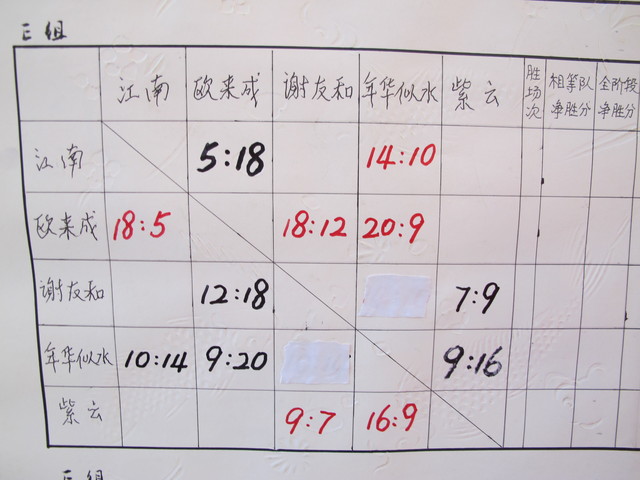 E组
江南 欧来成 谢友和 年华似水 紫云 胜场次 相挈队净胜分 全阶段净胜分
江南 5:18 14:10
欧来成 18:5 18:12 20:9
谢友和 12:18 7:9
年华似水 10:14 9:20 9:16
紫云 9:7 16:9